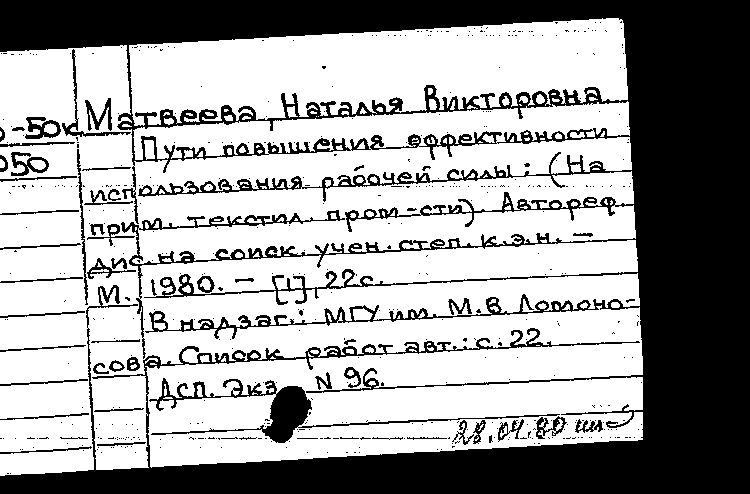 -50к Матвеева, Наталья Викторовна.
050 Пути повышения эффективности
использования рабочей силы: (На
прим. текстил. пром-сти). Автореф.
дис. на соиск. учен. степ. к.э.н. —
М., 1980. — [1], 22с.
В надзаг.: МГУ им. М.В. Ломоно-
сова. Список работ авт.: с. 22.
Дсп. Экз N 96.
28.04.80